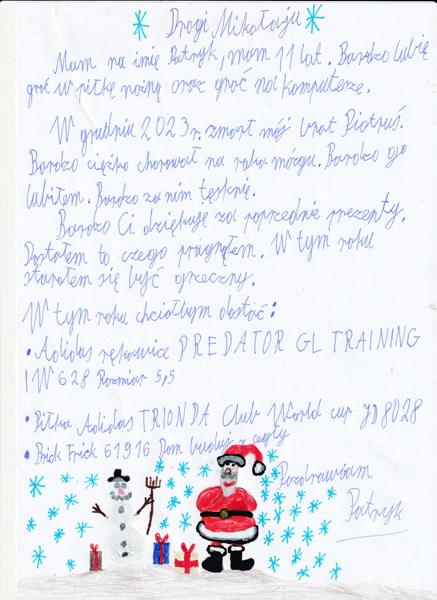 Drogi Mikołaju
Mam na imię Patryk, mam 11 lat. Bardzo lubię
grać w piłkę nożną oraz grać na komputerze.
W grudniu 2023 r. zmarł mój brat Piotruś.
Bardzo ciężko chorował na raka mózgu. Bardzo go
lubiłem. Bardzo za nim tęsknię.
Bardzo Ci dziękuję za poprzednie prezenty.
Dostałem to czego pragnąłem. W tym roku
starałem się być grzeczny.
W tym roku chciałbym dostać:
• Adidas rękawice PREDATOR GL TRAINING
IW628 Rozmiar 5,5
• Piłka Adidas TRIONDA Club World cup JD8028
• Brick Trick 61916 Dom buduj z cegły
Pozdrawiam
Patryk